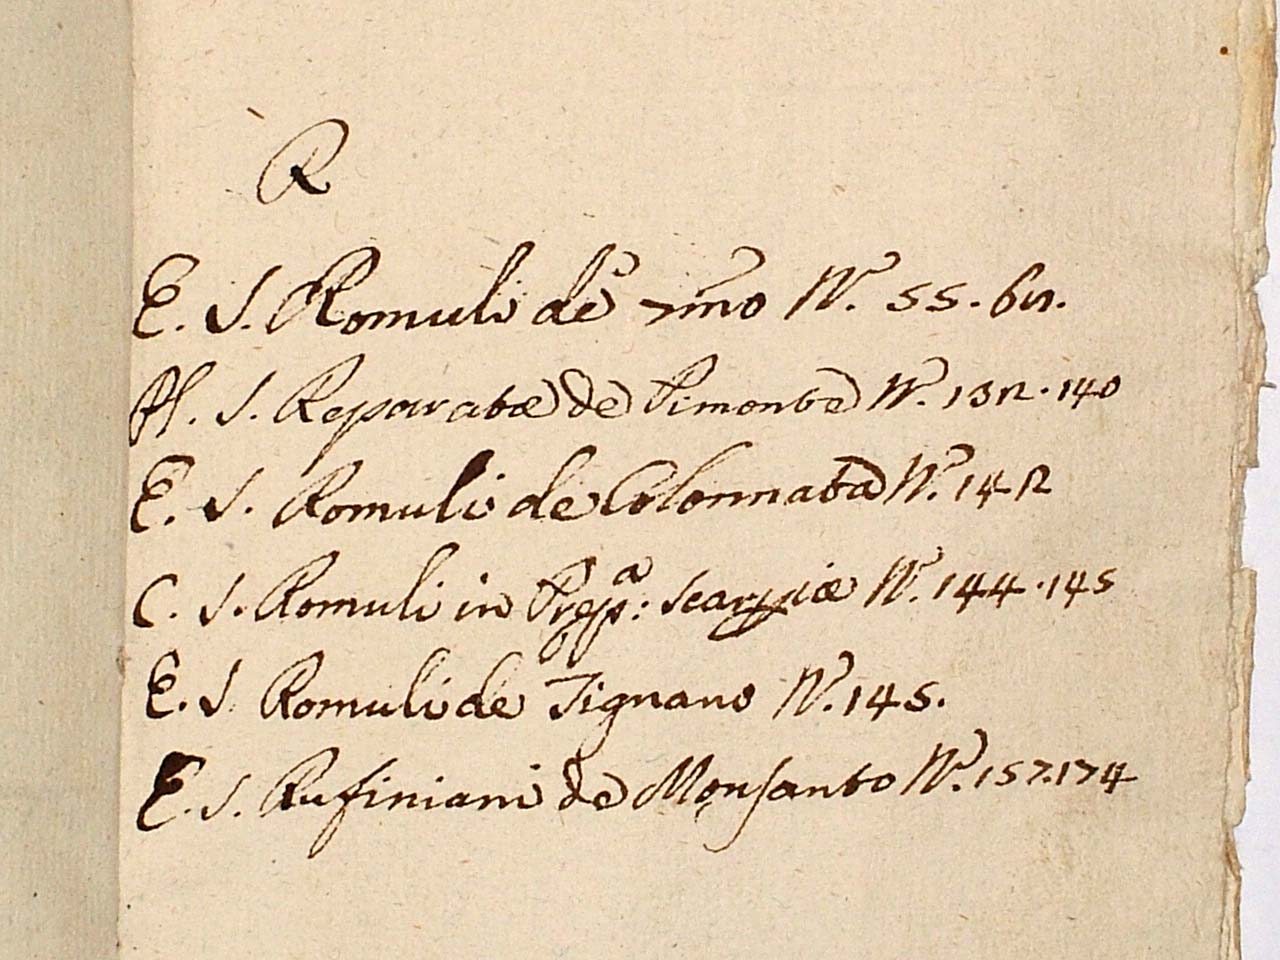 R
E. S. Romuli de N. 55. 62.
Pl. S. Reparatæ de Pimonte N. 132. 140
E. S. Romuli de Colonnata N. 142
C. S. Romuli in N. 144. 145
E. S. Romuli de Tignano N. 145.
E. S. Rufiniani de Monsanto N. 157. 174